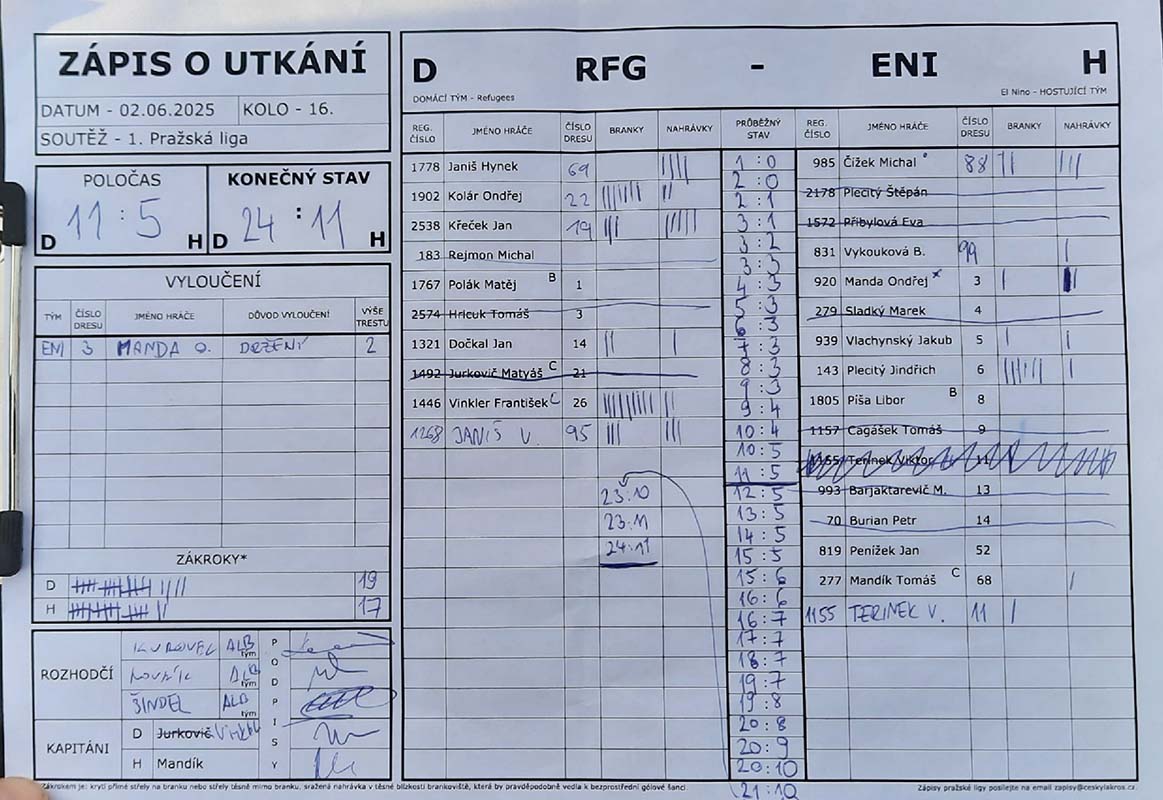 ZÁPIS O UTKÁNÍ
DATUM - 02.06.2025 KOLO - 16.
SOUTĚŽ - 1. Pražská liga
POLOČAS
D 11 : 5 H
KONEČNÝ STAV
D 24 : 11 H
VYLOUČENÍ
TÝM ČÍSLO DRESU JMÉNO HRÁČE DŮVOD VYLOUČENÍ VÝŠE TRESTU
ENI 3 MANDA O. DRŽENÍ 2
ZÁKROKY*
D 19
H 17
ROZHODČÍ
KUROVEC ALB tým
NOVÁK ALB tým
ŠINDEL ALB tým
PODPISY
KAPITÁNI
D Jurkovič
H Mandík
D RFG - ENI H
DOMÁCÍ TÝM - Refugees El Nino - HOSTUJÍCÍ TÝM
REG. ČÍSLO JMÉNO HRÁČE ČÍSLO DRESU BRANKY NAHRÁVKY
1778 Janiš Hynek 69 ||||
1902 Kolár Ondřej 22 ||||||| ||
2538 Křeček Jan 19 ||| |||||
183 Rejmon Michal
1767 Polák Matěj B 1
2574 Hricuk Tomáš 3
1321 Dočkal Jan 14 || |
1492 Jurkovič Matyáš C 21
1446 Vinkler František C 26 ||||||||| ||
1268 JANIŠ V. 95 ||| |||
23:10
23:11
24:11
PRŮBĚŽNÝ STAV
1:0
2:0
2:1
3:1
3:2
3:3
4:3
5:3
6:3
7:3
8:3
9:3
9:4
10:4
10:5
11:5
12:5
13:5
14:5
15:5
15:6
16:6
16:7
17:7
18:7
19:7
19:8
20:8
20:9
20:10
21:10
REG. ČÍSLO JMÉNO HRÁČE ČÍSLO DRESU BRANKY NAHRÁVKY
985 Čížek Michal 88 || |||
2178 Plecitý Štěpán
1572 Přibylová Eva
831 Vykouková B. 99 |
920 Manda Ondřej x 3 |
279 Sladký Marek 4
939 Vlachynský Jakub 5 | |
143 Plecitý Jindřich 6 |||||| |
1805 Píša Libor B 8
1157 Cagášek Tomáš 9
1155 Terinek Viktor 11
993 Barjaktarevič M. 13
70 Burian Petr 14
819 Penížek Jan 52
277 Mandík Tomáš C 68 |
1155 TERINEK V. 11 |
Zákrokem je: krytí přímé střely na branku nebo střely těsně mimo branku, sražená nahrávka v těsné blízkosti brankoviště, která by pravděpodobně vedla k bezprostřední gólové šanci.
Zápisy pražské ligy posílejte na email zapisy@ceskylakros.cz.